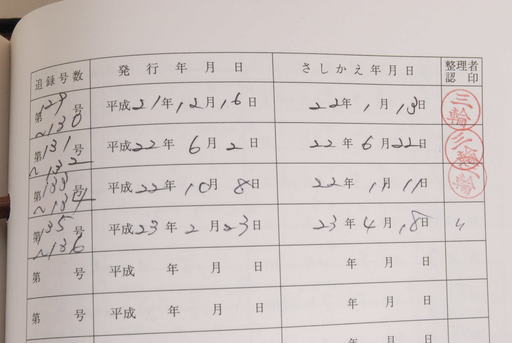 追録号数 発行年月日 さしかえ年月日 整理者認印
第129号~130 平成21年12月16日 22年1月13日 三輪
第131号~132 平成22年6月2日 22年6月22日 三輪
第133号~134 平成22年10月8日 22年11月11日 三輪
第135号~136 平成23年2月23日 23年4月18日 〃
第 号 平成 年 月 日 年 月 日
第 号 平成 年 月 日 年 月 日
年 月 日